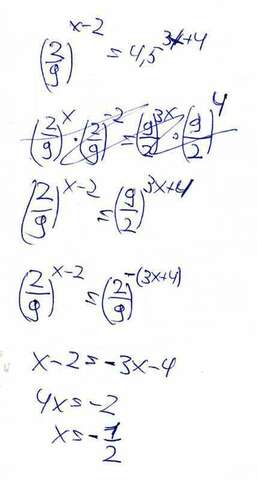 (2/9)^(x-2) = 4,5^(3x+4)
(2/9)^x · (2/9)^(-2) = (9/2)^(3x) · (9/2)^4
(2/9)^(x-2) = (9/2)^(3x+4)
(2/9)^(x-2) = (2/9)^(-(3x+4))
x-2=-3x-4
4x=-2
x=-1/2